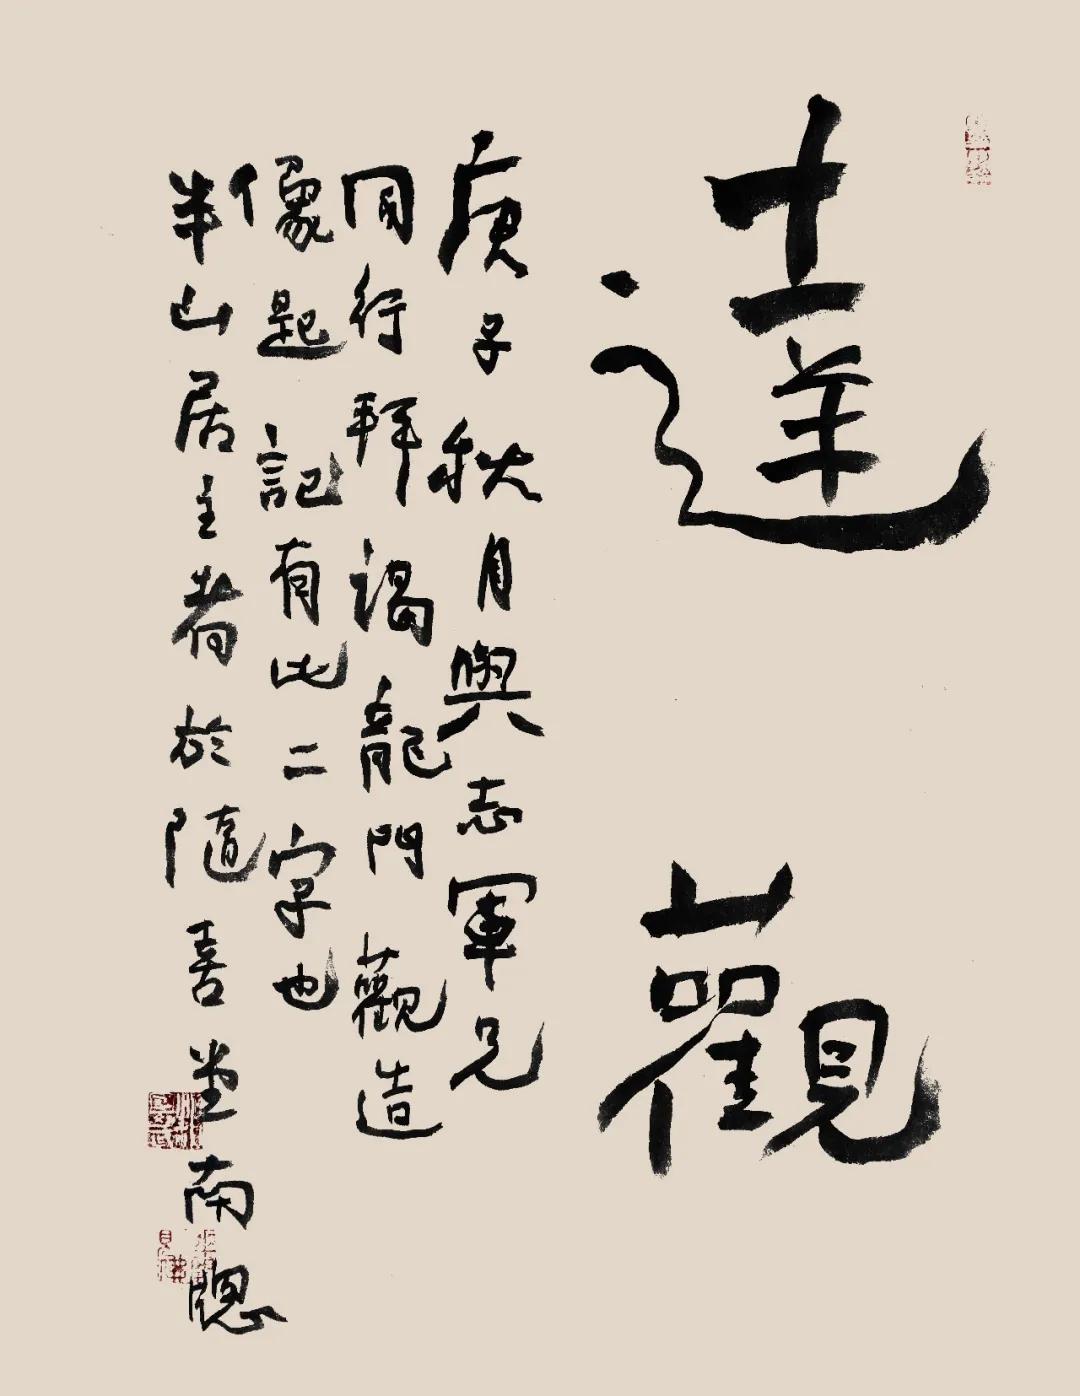 達觀
庚子秋月與志軍兄
同行拜謁龍門觀造
像起記有此二字也
半山居主者於隨喜堂南窓